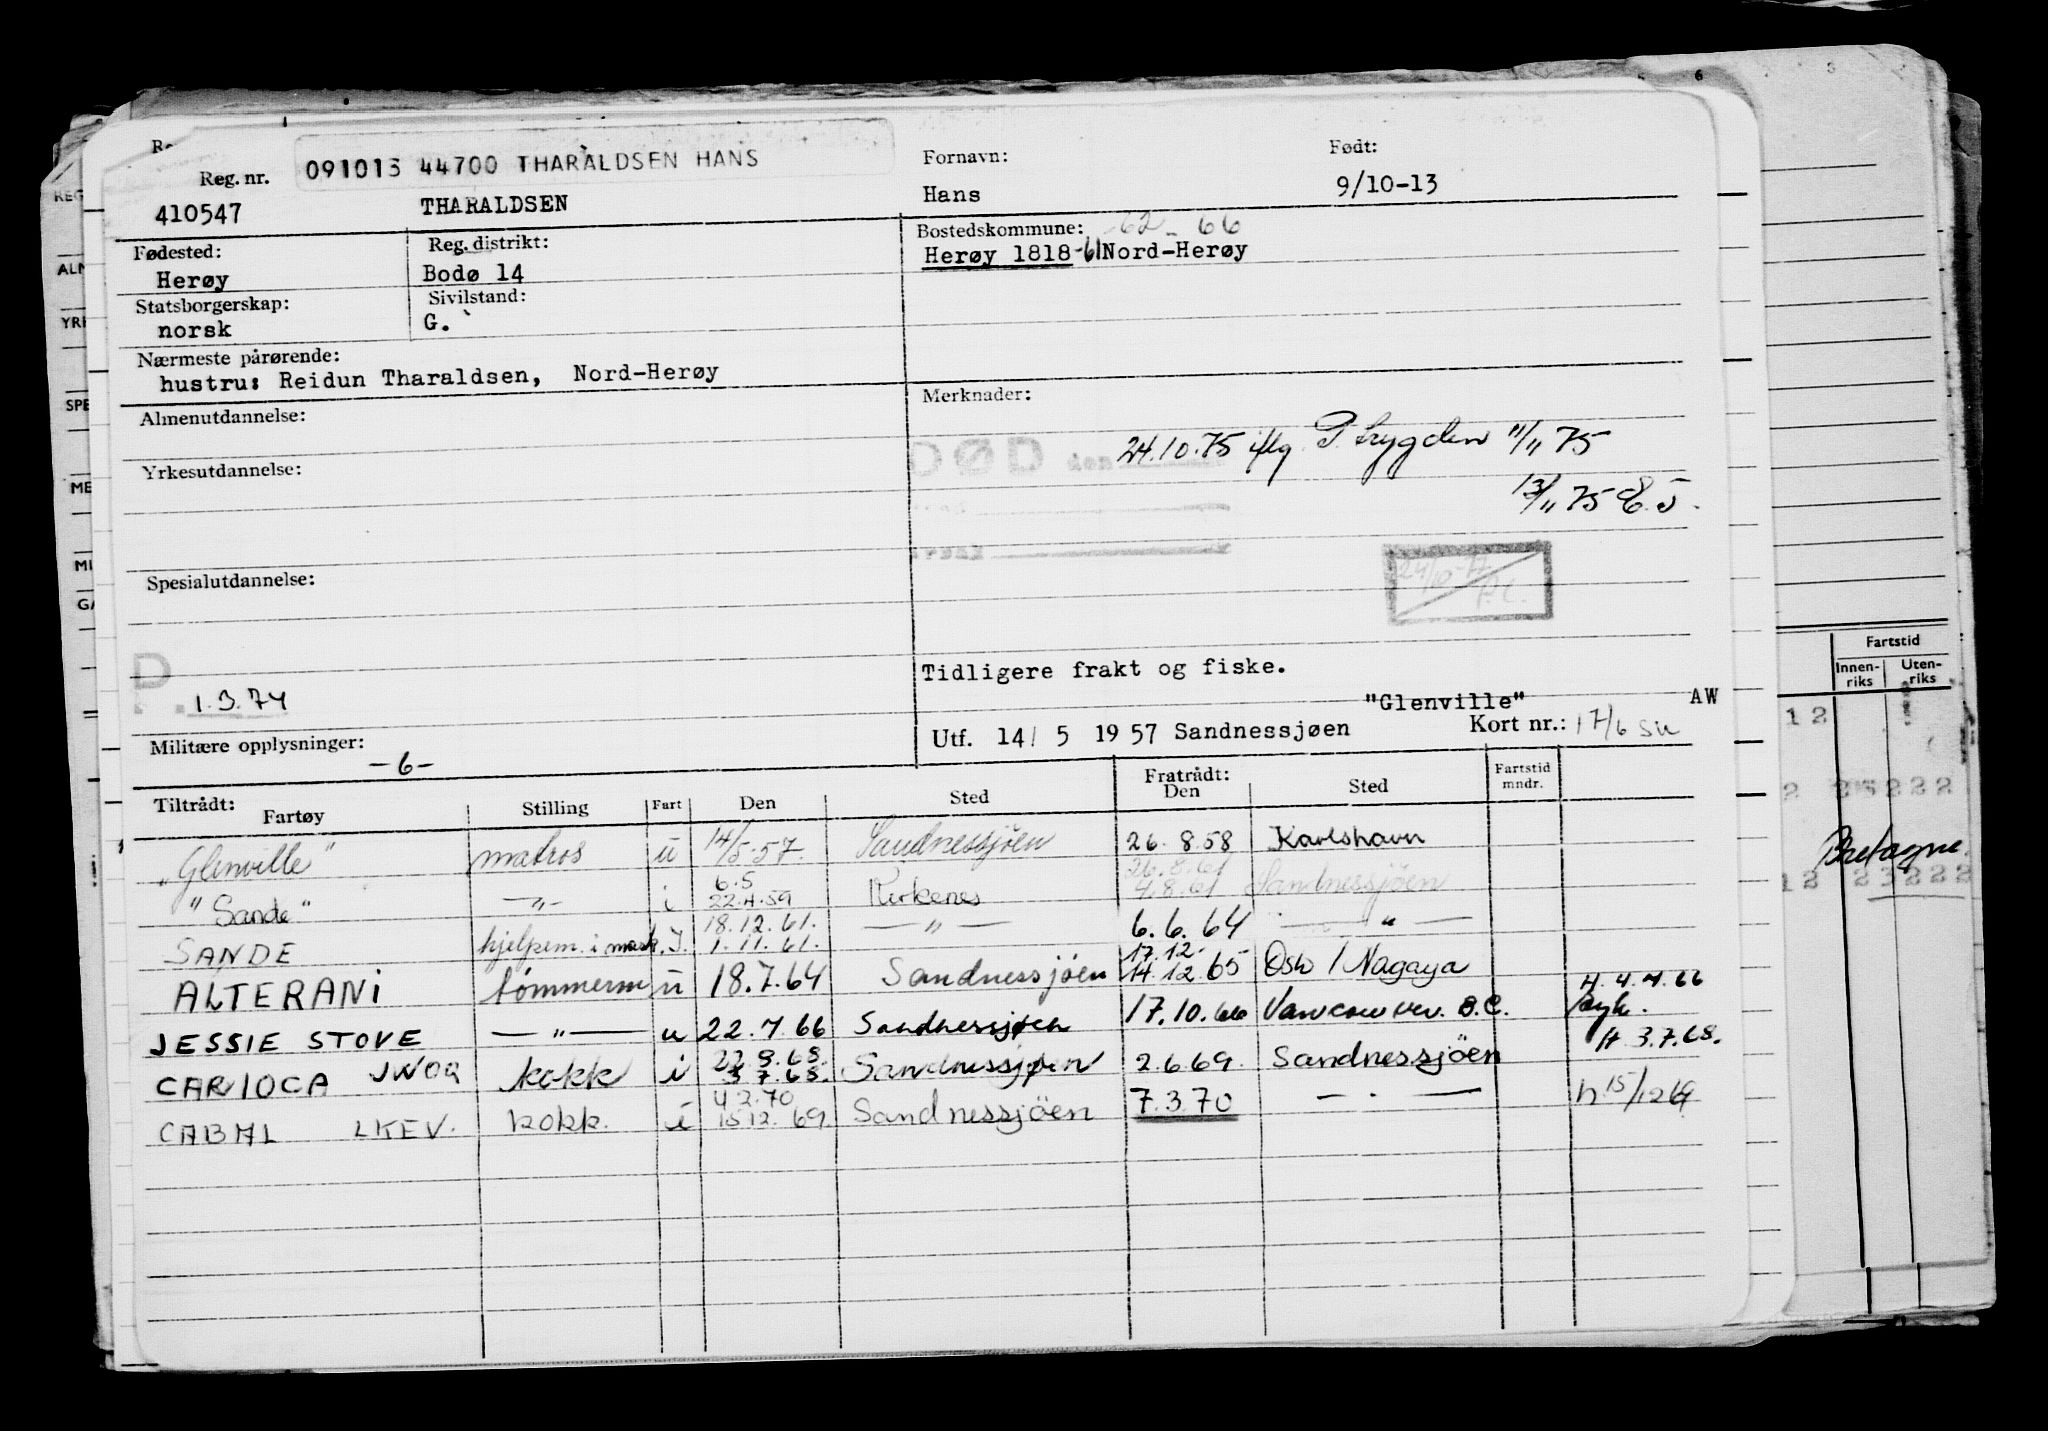 091013 44700 THARALDSEN HANS
Reg. nr.
Fornavn:
Født:
410547 THARALDSEN
Hans
9/10-13
Fødested:
Reg. distrikt:
Bostedskommune: -62 - 66
Herøy
Bodø 14
Herøy 1818-61 Nord-Herøy
Statsborgerskap:
Sivilstand:
norsk
G.
Nærmeste pårørende:
hustru: Reidun Tharaldsen, Nord-Herøy
Almenutdannelse:
Merknader:
DØD den 24.10.75 iflg. P. trygden 11/11 75
Yrkesutdannelse:
13/11 75
Spesialutdannelse:
Tidligere frakt og fiske.
1.3.74
"Glenville"
AW
Militære opplysninger:
-6-
Utf. 14/ 5 1957 Sandnessjøen
Kort nr.: 17/6 SU
Tiltrådt:
Fartøy
Stilling
Fart
Den
Sted
Fratrådt:
Den
Sted
Fartstid
mndr.
"Glenville" matros u 14/5-57. Sandnessjöen 26.8.58 Karlshavn
6.5 26.8.61
"Sande" -"- i 22.4.59 Kirkenes 4.8.61 Sandnessjöen
18.12.61.
SANDE hjelpem. i mask. I. 1.11.61. -"- 6.6.64 -"-
17.12.
ALTERANI tömmerm u 18.7.64 Sandnessjöen 14.12.65 Oslo / Nagaya
H. 4.4.66
JESSIE STOVE -"- u 22.4.66 Sandnessjøen 17.10.66 Vancouver. B.C. syk.
H. 3.7.68.
CARIOCA JWOQ kokk i 3.7.68. Sandnessjøen 2.6.69. Sandnessjöen
4.2.70
CABAL LKEV. kokk. i 15.12.69. Sandnessjöen 7.3.70 - . - h 15/12 69
Fartstid
Innen-
riks
Uten-
riks
12
2 2 222
Bretagne
12 23222